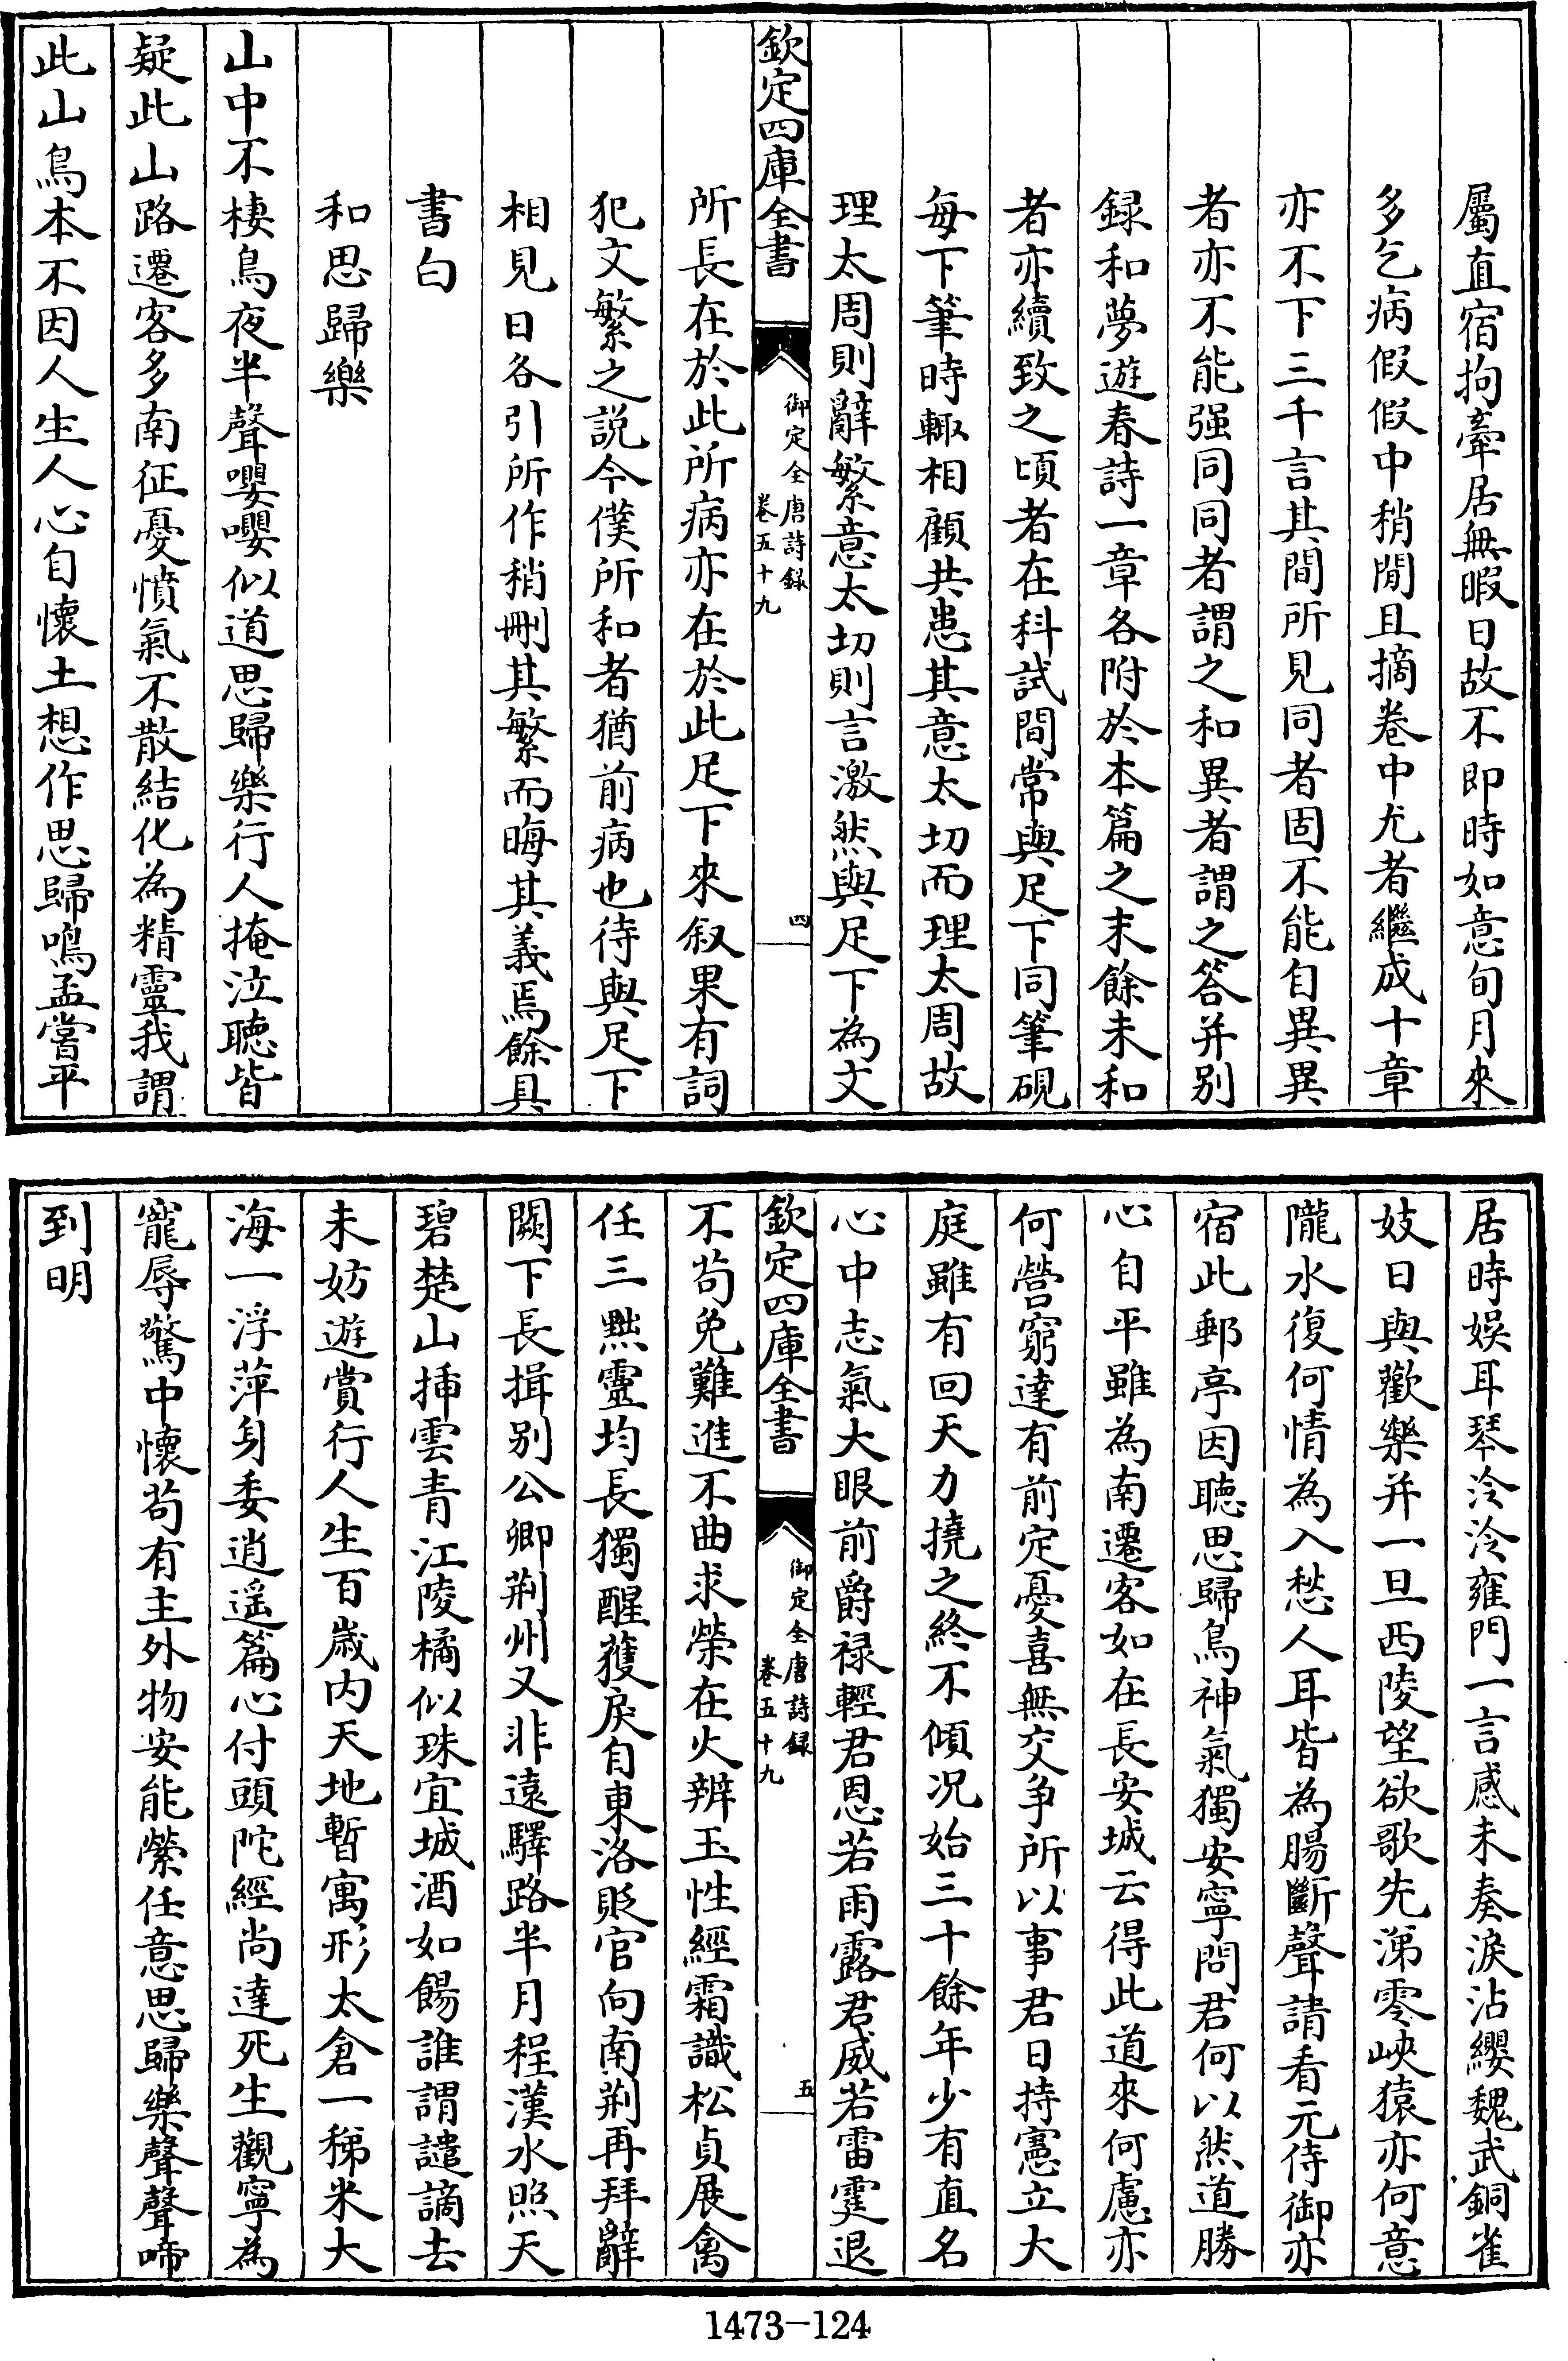 屬直宿拘牽居無暇日故不即時如意旬月來
多乞病假假中稍閒且摘卷中尤者繼成十章
亦不下三千言其間所見同者固不能自異異
者亦不能强同同者謂之和異者謂之答并别
録和夢遊春詩一章各附於本篇之末餘未和
者亦續致之頃者在科試間常與足下同筆硯
每下筆時輙相顧共患其意太切而理太周故
理太周則辭繁意太切則言激然與足下為文
欽定四庫全書
御定全唐詩録
卷五十九
四
所長在於此所病亦在於此足下來叙果有詞
犯文繁之説今僕所和者猶前病也待與足下
相見日各引所作稍刪其繁而晦其義焉餘具
書白
和思歸樂
山中不棲鳥夜半聲嚶嚶似道思歸樂行人掩泣聽皆
疑此山路遷客多南征憂憤氣不散結化為精靈我謂
此山鳥本不因人生人心自懷土想作思歸鳴孟嘗平
居時娱耳琴泠泠雍門一言感未奏淚沾纓魏武銅雀
妓日與歡樂并一旦西陵望欲歌先涕零峽猿亦何意
隴水復何情為入愁人耳皆為腸斷聲請看元侍御亦
宿此郵亭因聽思歸鳥神氣獨安寧問君何以然道勝
心自平雖為南遷客如在長安城云得此道來何慮亦
何營窮達有前定憂喜無交争所以事君日持憲立大
庭雖有回天力撓之終不傾况始三十餘年少有直名
心中志氣大眼前爵禄輕君恩若雨露君威若雷霆退
欽定四庫全書
御定全唐詩録
卷五十九
五
不茍免難進不曲求榮在火辨玉性經霜識松貞展禽
任三黜靈均長獨醒獲戾自東洛貶官向南荆再拜辭
闕下長揖别公卿荆州又非遠驛路半月程漢水照天
碧楚山插雲青江陵橘似珠宜城酒如餳誰謂譴謫去
未妨遊賞行人生百歲内天地暫寓形太倉一稊米大
海一浮萍身委逍遥篇心付頭陀經尚達死生觀寧為
寵辱驚中懷茍有主外物安能縈任意思歸樂聲聲啼
到明
1473-124